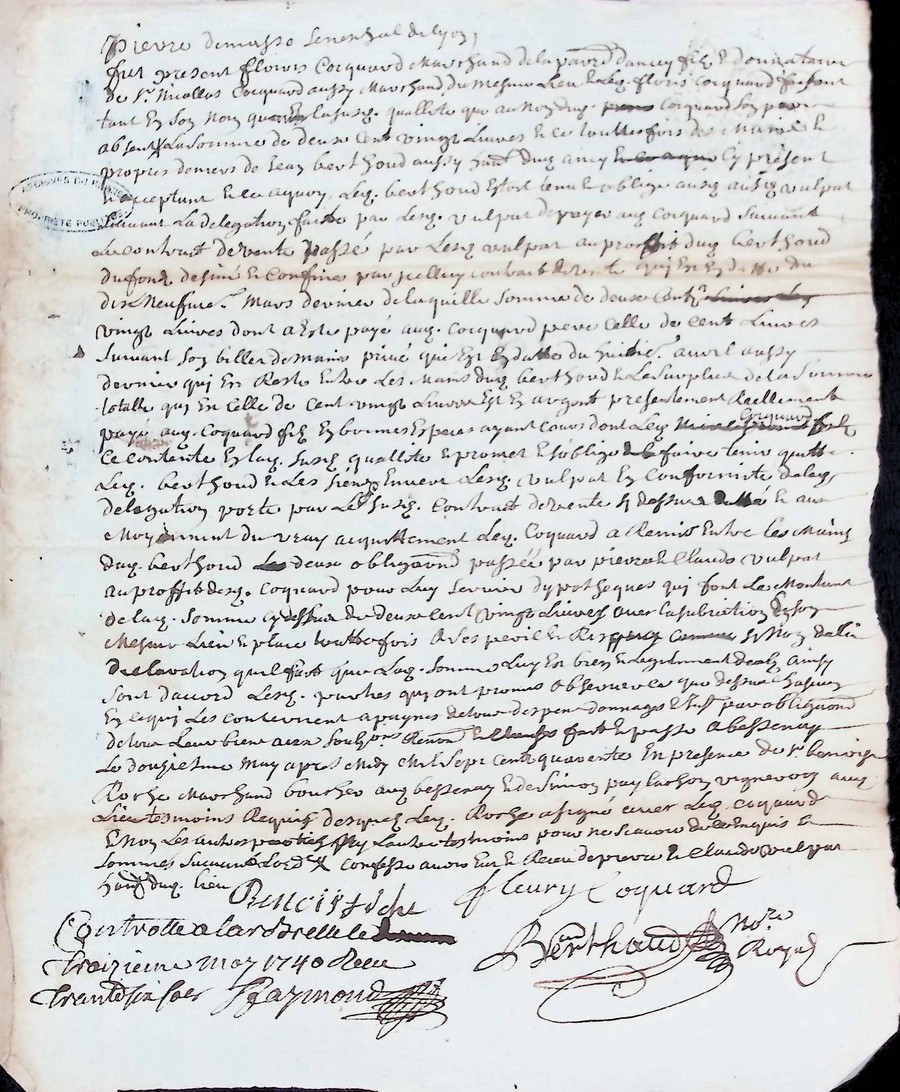 Pierre demasso Senechal de Lyon,
fut present fleuris Cocquard Marchand de la parr. d'ancy fils Et donnataire
de Sr. Nicollas Cocquard aussy Marchand du mesme Lieu Et Leq. fleuris Cocquard faisant
tant En Son Nom que En la susq. quallité que au Nom duq. Cocquard Son pere
absent La Somme de deux Cent vingt Livres Et ce touttefois des Mains Et
propres deniers de Jean berthoud aussy hant. duq. ancy Cy présent
Et acceptant Et Ce aquoy Leq. berthoud Estoit tenu Et obligé vulpat
Suivant La delegation faitte par Lesq. vulpat de payer auq. Cocquard Suivant
Le contrait de vente passé par Lesq. vulpat au proffit duq. berthoud
du fond designé Et Confiné par jcelluy contrait de vente qui Est En datte du
dix Neufvie. Mars dernier de laquelle Somme de deux Cent
vingt Livres dont a Esté payé auq. Cocquard pere Celle de Cent Livres
Suivant Son billet de main privé qui Est En datte du huitie. avril aussy
dernier qui En Reste Entre Les Mains duq. berthoud Et Le Surplus de la Somme
totalle qui En Celle de Cent vingt Livres Est En argent presentement Reellement
payé auq. Cocquard fils En bonnes Especes ayant Cours dont Leq. Cocquard
Ce contente En laq. susq. quallité Et promet Et s'oblige de faire tenir quitte
Leq. berthoud Et Les Siens Envers Lesq. vulpat En Conformité de laq.
delegation porté par Le susq. Contrait de vente Cy dessus datté Et au
Moyennent du vray acquittement Leq. Cocquard a Remis Entre les Mains
duq. berthoud deux obligaons passée par pierre Et Claude vulpat
au proffit desq. Cocquard pour Luy Servir d'ypotheques qui font Le Montant
de laq. Somme Cy dessus de deux Cent vingt Livres avec La subrication En Son
Mesme Lieu Et place touttefois a Ses peril Et Risques Sy Non de la
declaration qu'il fait que Laq. Somme Luy Est bien Et Legitimement deub ainsy
Sont d'accord Lesq. parties qui ont promis observer Ce que dessus chascun
En Ce qui Les concernent a paynes de tous despens donmages Et Jnt. par obligaons
de tous Leur biens avec Soubons. Renon. Et Clauses fait Et passé a bessenay
Le douzieme May apres Midy Mil Sept Cent quarente En presence de Sr. benoist
Roche Marchand boucher auq. bessenay Et de Simon paylachon vigneron auq.
Lieu tesmoins Requis desquels Leq. Roche a signé avec Leq. Cocquard
Et Non Les autres parties Ny L'autre tesmoins pour ne Scavoir de ce Enquis Et
Sommés Suivant L'ord. Confesse avoir Eut Et Receu de pierre Et Claude vulpat
hant. duq. lieu
Benoist Roche
fleury Coquard
Controllé a larbrelle le
troizieme may 1740 Receu
trante six sols Raymond
Berthaud Nore.
Royal
ARCHIVES DU RHÔNE
PROPRIÉTÉ PUBLIQUE